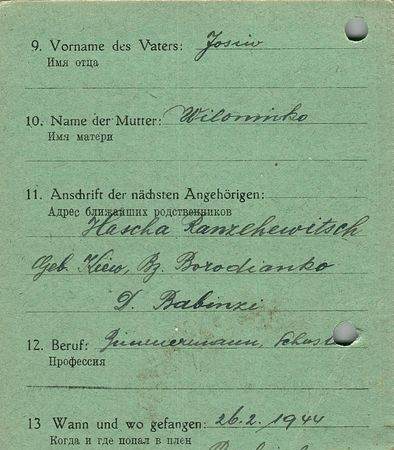 9. Vorname des Vaters: Josiw
Имя отца
10. Name der Mutter: Wilominko
Имя матери
11. Anschrift der nächsten Angehörigen:
Адрес ближайших родственников
Hascha Ranzehewitsch
Geb. Kiew, Bz. Borodianko
D. Babinzi
12. Beruf: Zimmermann,
Профессия
13 Wann und wo gefangen: 26.2.1944
Когда и где попал в плен